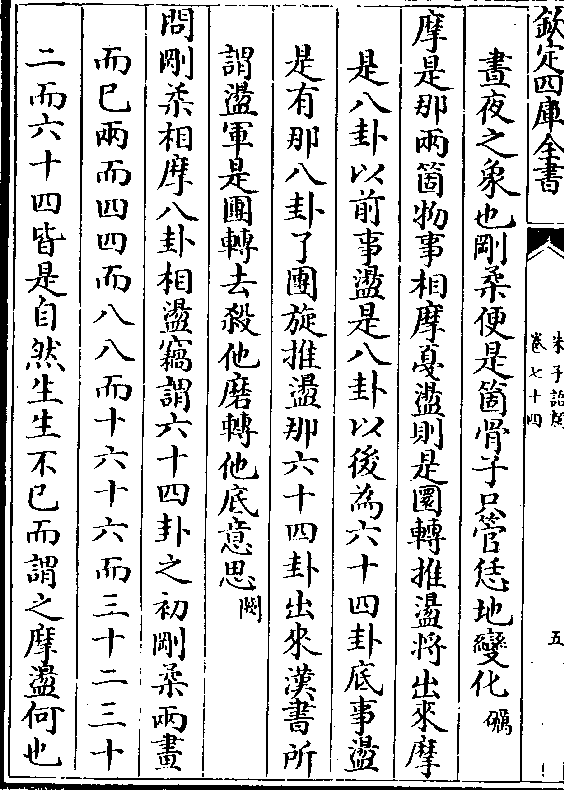 欽定四庫全書
朱子語類
卷七十四
五
晝夜之象也剛柔便是箇骨子只管恁地變化礪
摩是那兩箇物事相摩戛盪則是圜轉推盪將出來摩
是八卦以前事盪是八卦以後為六十四卦底事盪
是有那八卦了團旋推盪那六十四卦出來漢書所
謂盪軍是團轉去殺他磨轉他底意思閎
問剛柔相摩八卦相盪竊謂六十四卦之初剛柔兩畫
而已兩而四四而八八而十六十六而三十二三十
二而六十四皆是自然生生不已而謂之摩盪何也